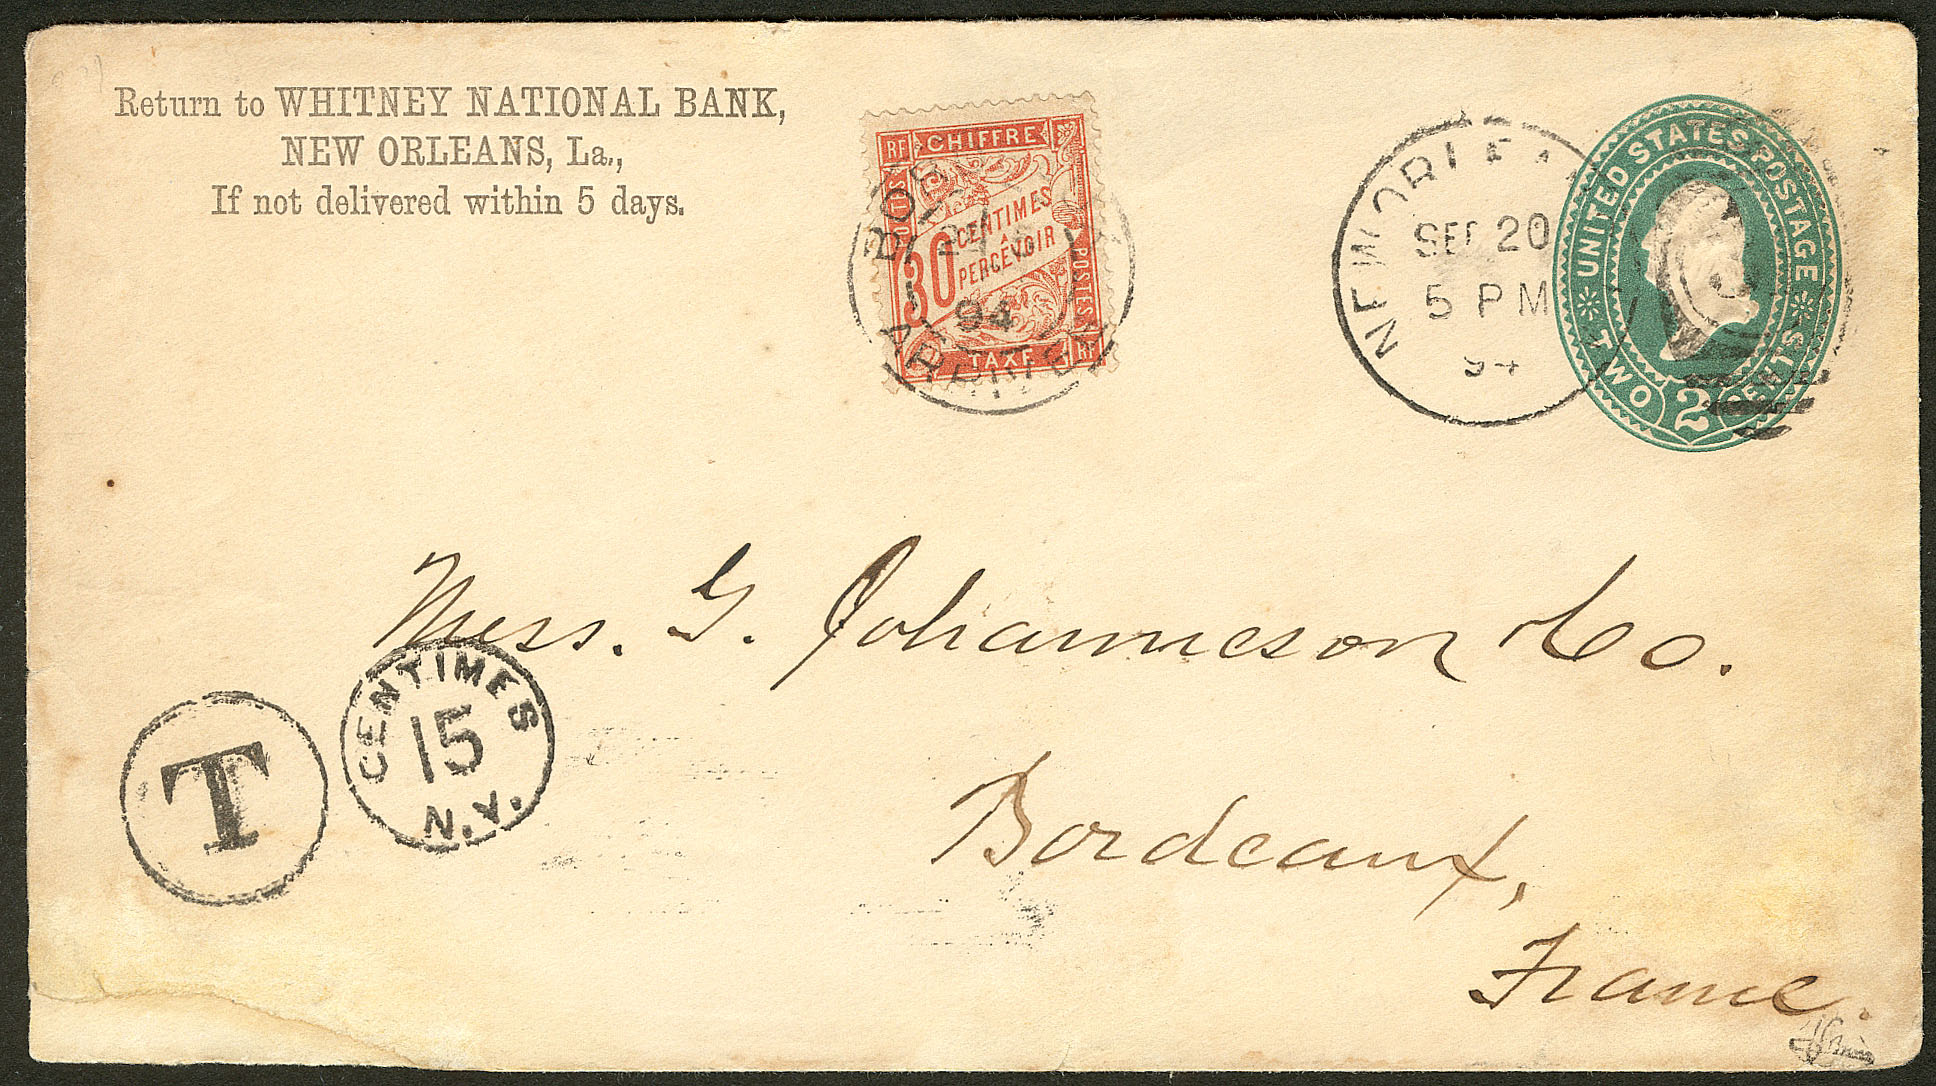 Return to WHITNEY NATIONAL BANK,
NEW ORLEANS, La.,
If not delivered within 5 days.
RF CHIFFRE
POSTES
30 CENTIMES
À
PERCEVOIR
POSTES
TAXE RF
94
NEW ORLEA
SEP 20
5 PM
94
UNITED STATES POSTAGE
TWO 2 CENTS
Mess. G. Johanneson & Co.
Bordeaux,
France.
T
CENTIMES
15
N.Y.